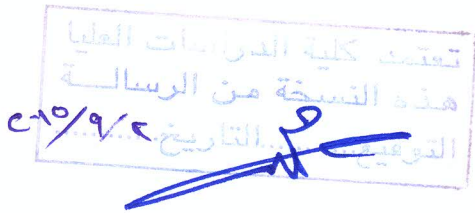 تعتمد كلية الدراسات العليا
هذه النسخة من الرسالة
التوقيع.........التاريخ......... ٢٠١٥/٩/٢